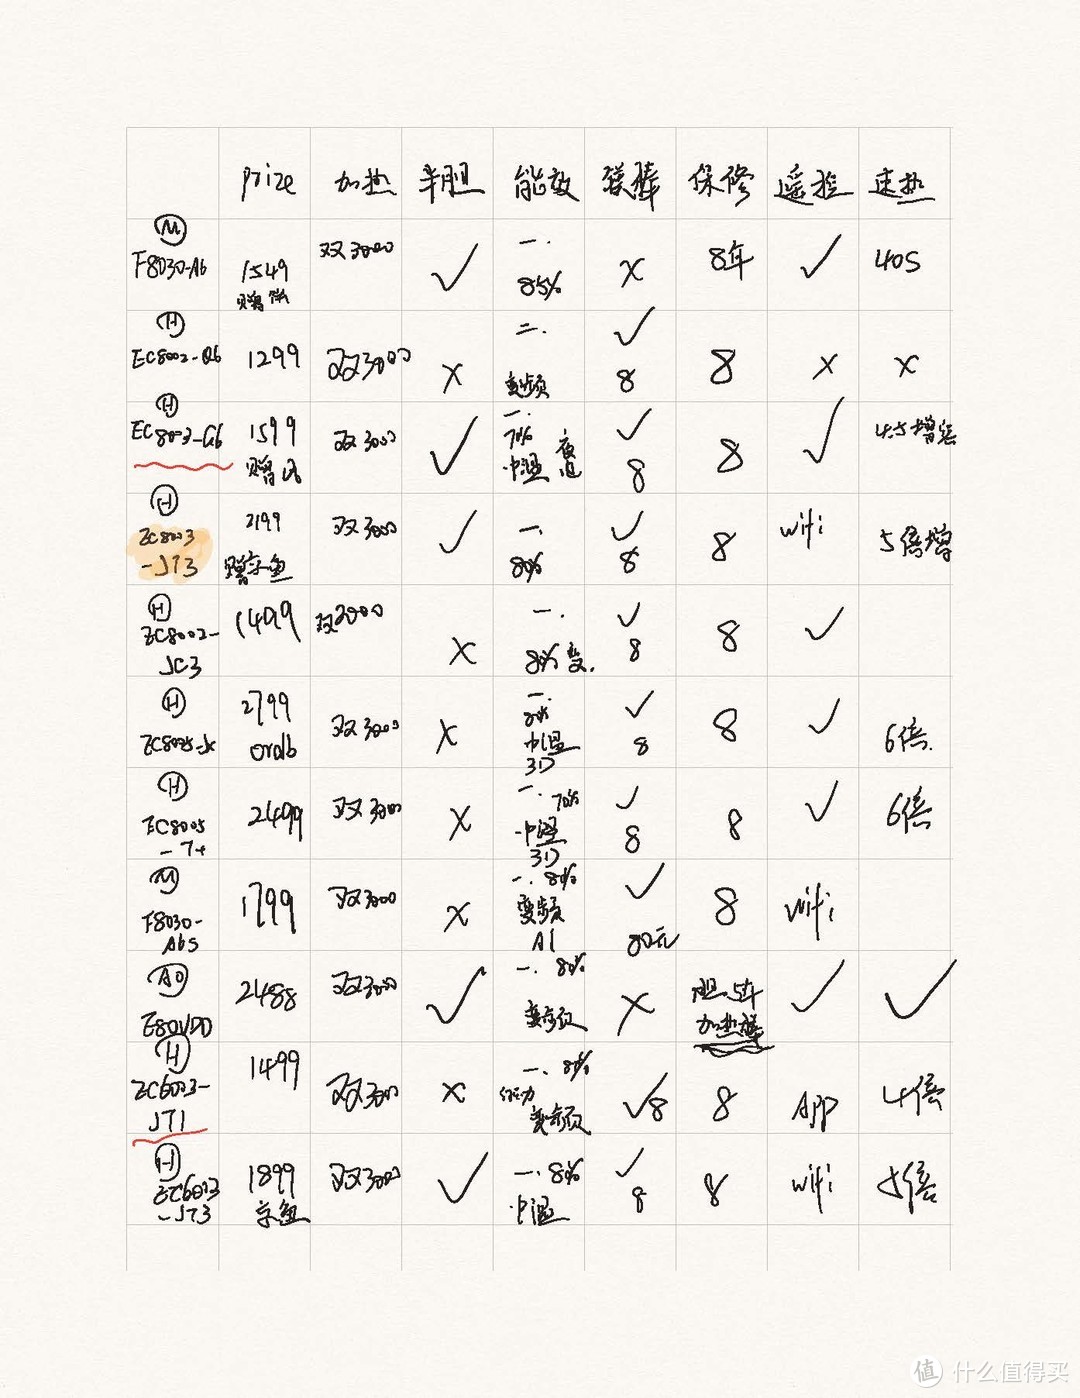 prize 加热 半胆 能效 镁棒 保修 遥控 速热
M
F8030-A6 1549 双3000 ✓ 一. X 8年 ✓ 40S
赠 85%
H
EC8002-Q6 1299 双3000 X 二. ✓ 8 X X
变频 8
H
EC8003-G6 1599 双3000 ✓ 一. ✓ 8 ✓ 4.5增容
赠 70% 8
中温 夜电
H
EC8003 2199 双3000 ✓ 一. ✓ 8 wifi 5倍增
-JT3 赠京鱼 80% 8
H
EC8002- 1499 双3000 X 一. ✓ 8 ✓
JC3 80% 变. 8
H
EC8005-JX 2799 双3000 X 一. ✓ 8 ✓ 6倍.
oralb 80% 8
中温
3D
H
EC8005 2499 双3000 X 一. 70% ✓ 8 ✓ 6倍
-T+ 中温 8
3D
M
F8030- 1799 双3000 X 一. 80% ✓ 8 wifi
A6S 变频 80元
AI
AO
E80VDD 2488 双3000 ✓ 一. 80% X 胆.5年 ✓ ✓
变频 加热棒
H
EC6003- 1499 双3000 X 一. 80% ✓8 8 APP 4倍
JT1 变频
H
EC6003 1899 双3000 ✓ 一. 80% ✓ 8 wifi 5倍
-JT3 京鱼 中温 8
值 什么值得买